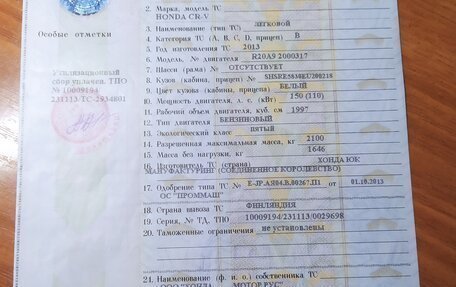 Особые отметки
Утилизационный
сбор уплачен. ТПО
№ 10009194/
231113/ТС-2934801
2. Марка, модель ТС
HONDA CR-V
3. Наименование (тип ТС) легковой
4. Категория ТС (А, В, С, D, прицеп) B
5. Год изготовления ТС 2013
6. Модель, № двигателя R20A9 2000317
7. Шасси (рама) № ОТСУТСТВУЕТ
8. Кузов (кабина, прицеп) №
9. Цвет кузова (кабины, прицепа) БЕЛЫЙ
10. Мощность двигателя, л. с. (кВт) 150 (110)
11. Рабочий объем двигателя, куб. см 1997
12. Тип двигателя БЕНЗИНОВЫЙ
13. Экологический класс пятый
14. Разрешенная максимальная масса, кг 2100
15. Масса без нагрузки, кг 1646
16. Изготовитель ТС (страна) ХОНДА ЮК
МАНУФАКТУРИНГ (СОЕДИНЕННОЕ КОРОЛЕВСТВО)
17. Одобрение типа ТС № E-JP.АЯ04.B.00267.П1 от 01.10.2013
ОС "ПРОММАШ"
18. Страна вывоза ТС ФИНЛЯНДИЯ
19. Серия, № ТД, ТПО 10009194/231113/0029698
20. Таможенные ограничения не установлены
21. Наименование (ф. и. о.) собственника ТС
ООО "ХОНДА МОТОР РУС"